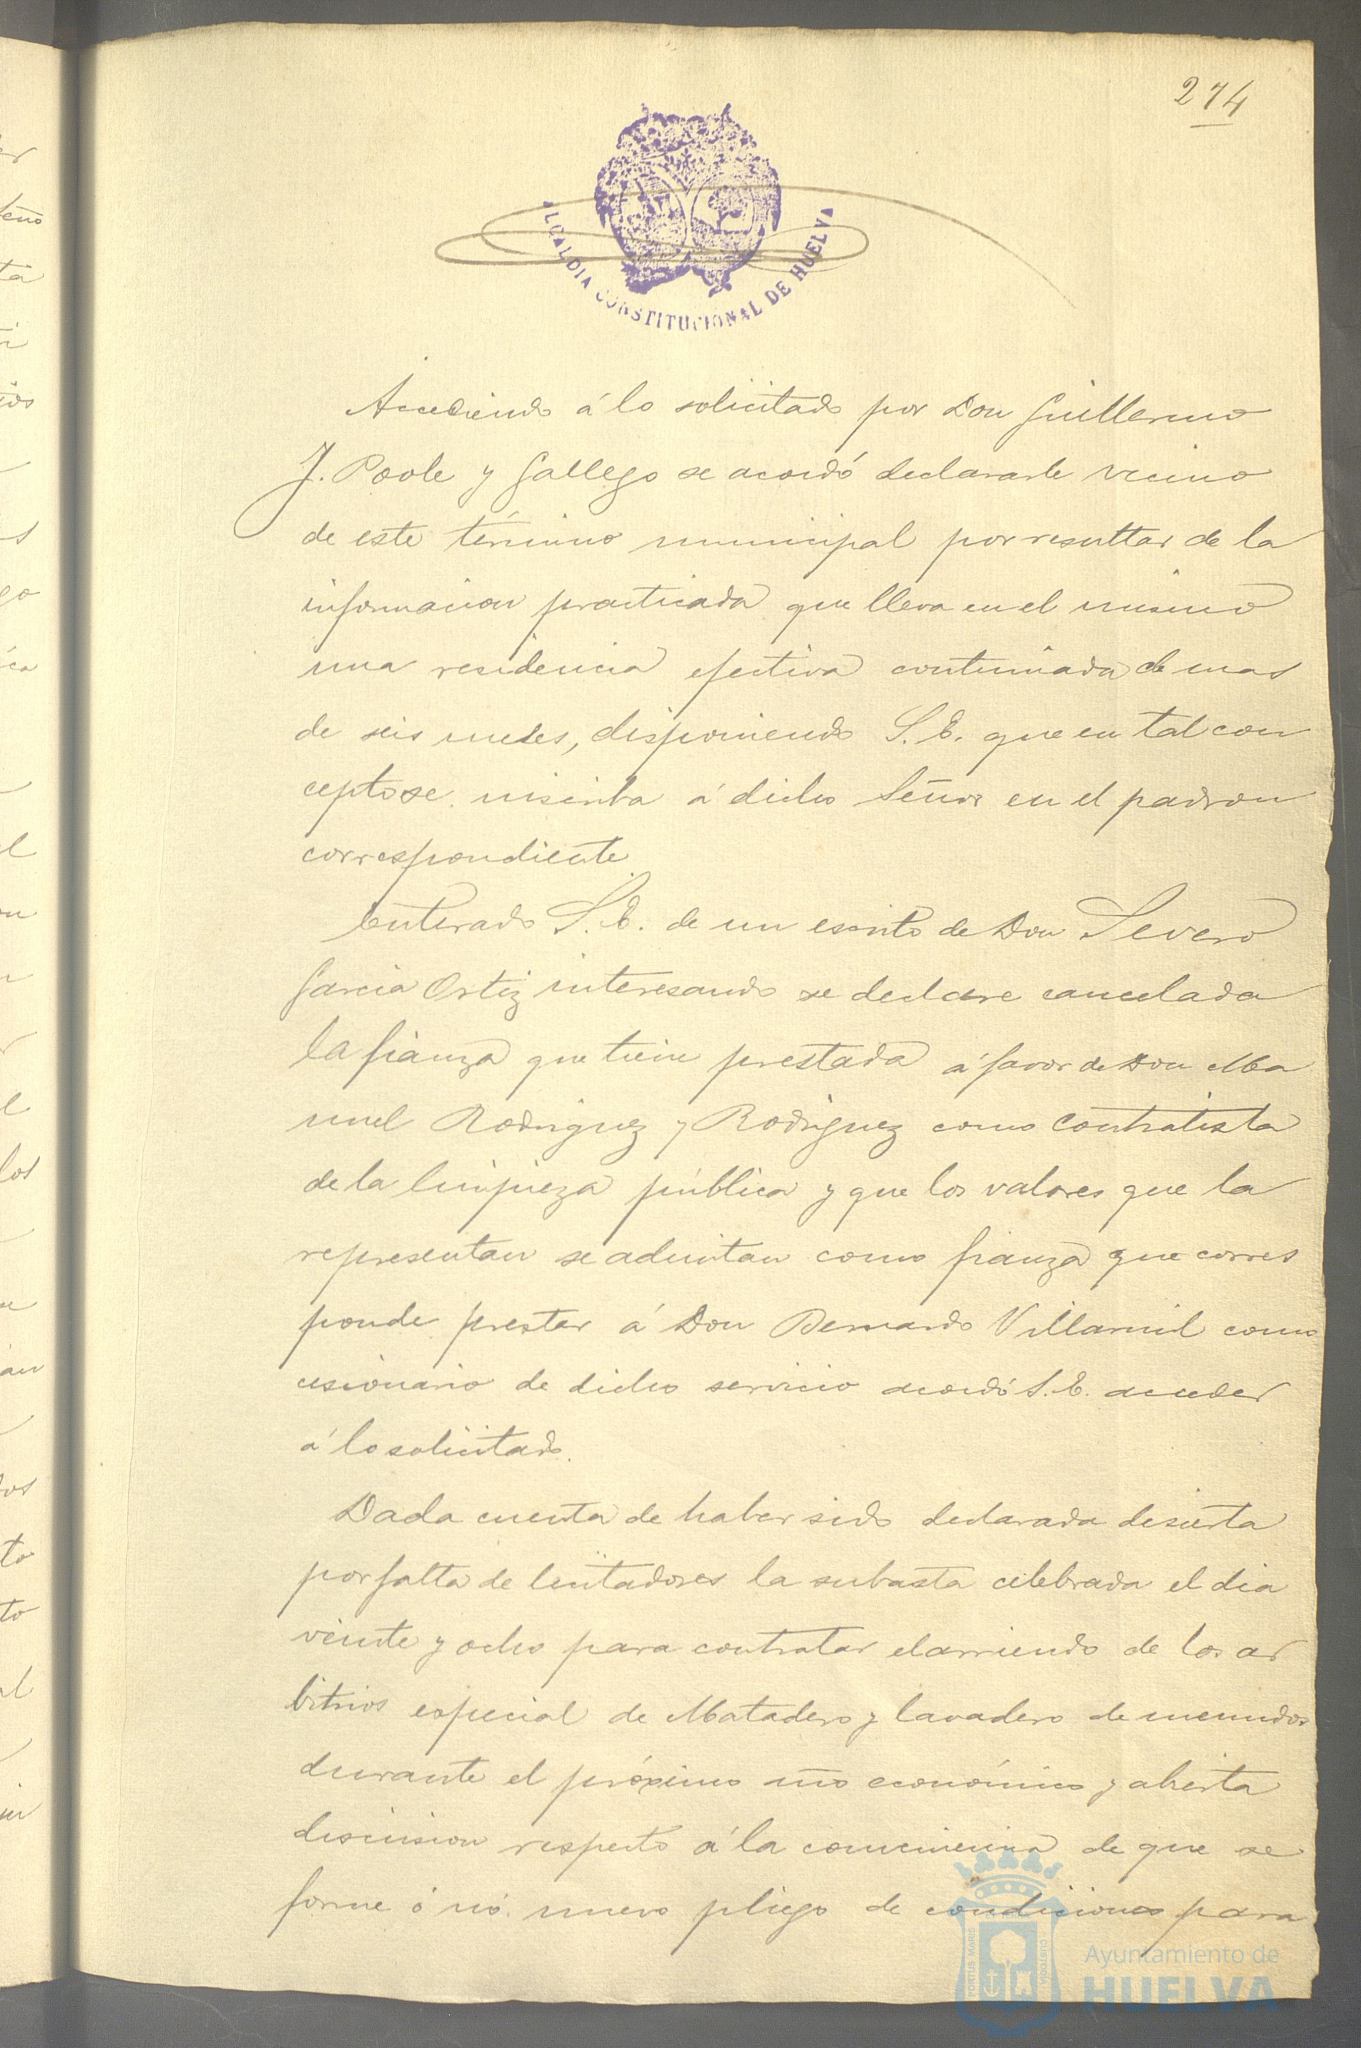 274
ALCALDIA CONSTITUCIONAL DE HUELVA
Accediendo á lo solicitado por Don Guillermo
J. Poole y Gallego se acordó declararle vecino
de este término municipal por resultar de la
informacion practicada que lleva en el mismo
una residencia efectiva continuada de mas
de seis meses, disponiendo S. E. que en tal con
cepto se inscriba á dicho Señor en el padron
correspondiente
Enterado S. E. de un escrito de Don Severo
Garcia Ortiz interesando se declare cancelada
la fianza que tiene prestada á favor de Don Ma
nuel Rodriguez y Rodriguez como contratista
de la limpieza pública y que los valores que la
representan se admitan como fianza que corres
ponde prestar á Don Bernardo Villamil como
cesionario de dicho servicio acordó S. E. acceder
á lo solicitado.
Dada cuenta de haber sido declarada desierta
por falta de licitadores la subasta celebrada el dia
veinte y ocho para contratar el arriendo de los ar
bitrios especial de Matadero y lavadero de menudos
durante el próximo año económico y abierta
discusion respecto á la conveniencia de que se
forme ó nó nuevo pliego de condiciones para
PORTUS MARIS CUSTODIA
Ayuntamiento de
HUELVA